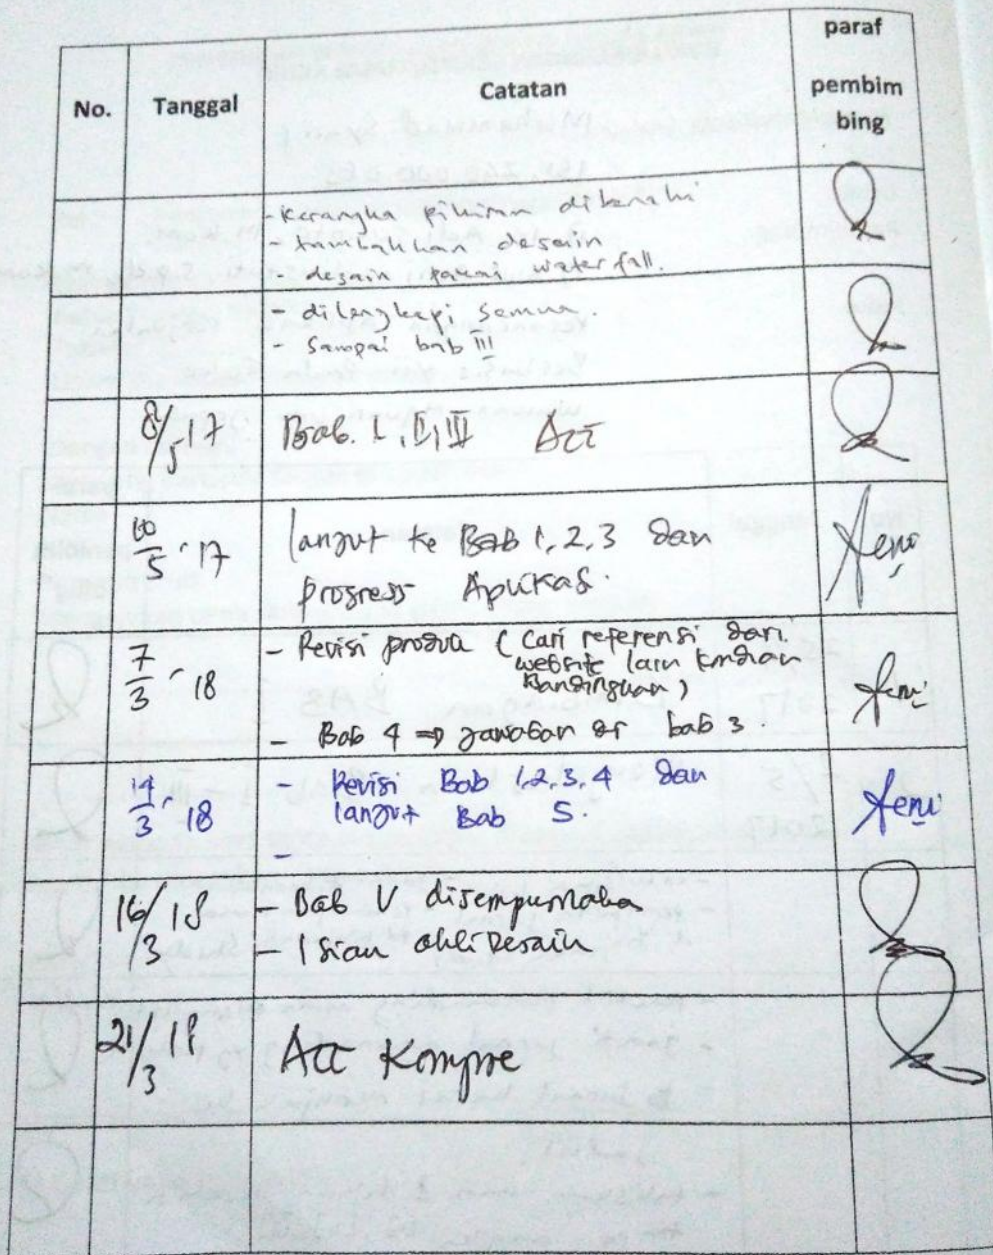 No. Tanggal Catatan paraf
pembim
bing
- Kerangka pikiran dibenahi
- tambahkan desain
desain pakai waterfall.
- dilengkapi semua.
- Sampai bab III
8/5 17 Bab. I, II, III Acc
10/5 . 17 lanjut ke Bab 1, 2, 3 dan
progress Aplikasi.
7/3 . 18 - Revisi produk (Cari referensi dari
website lain kmdian
bandingkan)
- Bab 4 => jawaban dr bab 3.
14/3 . 18 - Revisi Bab 1,2,3,4 dan
lanjut Bab 5.
-
16/3 18 - Bab V disempurnaka
- Isian ahli Desain
21/3 18 Acc Kompre